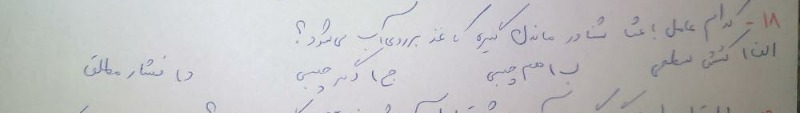 ۱۸- کدام عامل باعث شناور ماندن گیره کاغذ بر روی آب می شود؟
الف) کشش سطحی ب) هم چسبی ج) دگر چسبی د) فشار مطلق